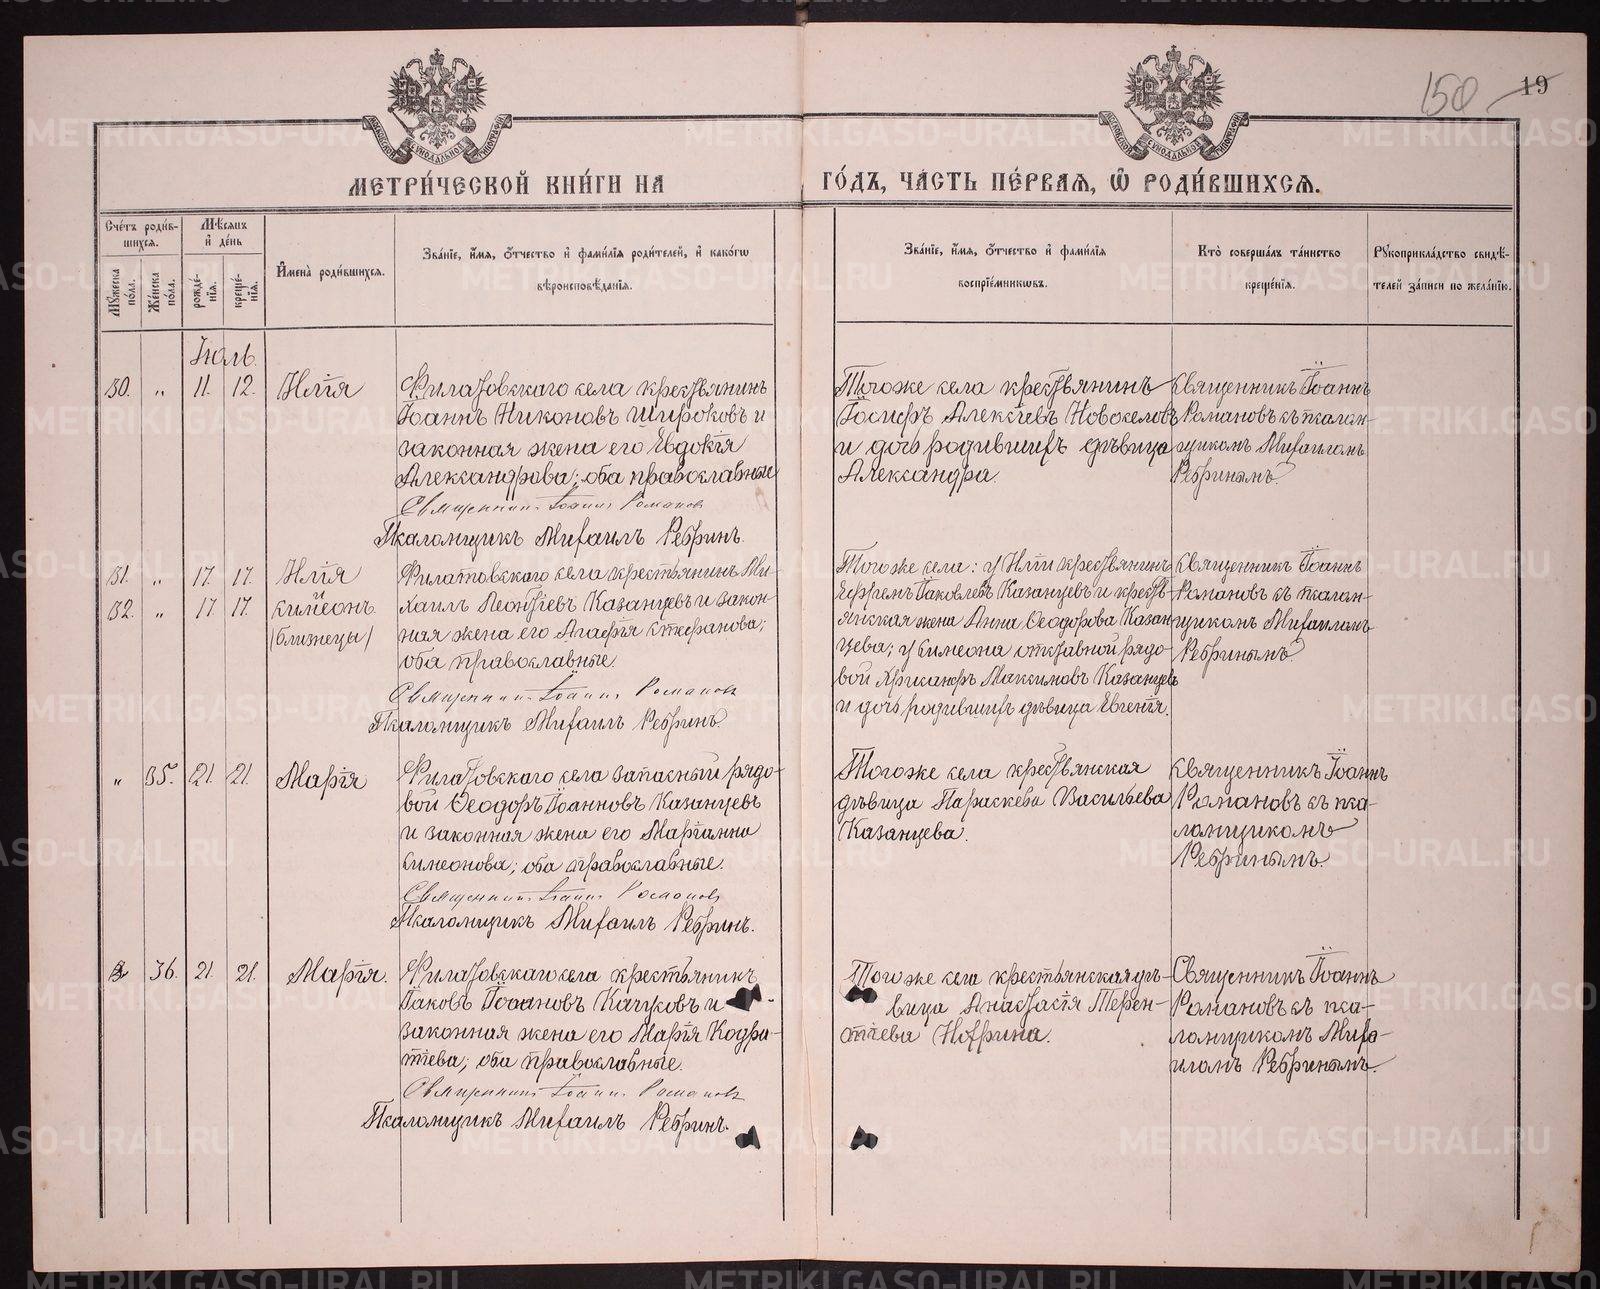 150 19
МЕТРИ́ЧЕСКОЙ КНИ́ГИ НА ГО́ДЪ, ЧА́СТЬ ПЕ́РВАЯ, Ѡ҆ РОДИ́ВШИХСЯ.
Сче́тъ роди́в-
шихся.
Мѣсяцъ
и҆ де́нь
Мꙋжеска по́ла.
Же́нска по́ла.
рожде́-
нїя.
креще́-
нїя.
И҆мена̀ роди́вшихся.
Зва́нїе, и҆́мя, ѻ҆́тчество и҆ фами́лїя роди́телей, и҆ како́гѡ
вѣроисповѣ́данїя.
Зва́нїе, и҆́мя, ѻ҆́тчество и҆ фами́лїя
воспрїе́мникѡвъ.
Кто̀ соверша́лъ та́инство
креще́нїя.
Рꙋкоприкла́дство свидѣ́-
телей за́писи по жела́нїю.
Іюль.
30. „ 11. 12. Илія
Филатовскаго села крестьянинъ
Іоаннъ Никоновъ Широковъ и
законная жена его Евдокія
Александрова; оба православные
Священникъ Іоаннъ Романовъ
Псаломщикъ Михаилъ Ребринъ.
Тогоже села крестьянинъ
Іосифъ Алексіевъ Новоселовъ
и дочь родившихъ дѣвица
Александра.
Священникъ Іоаннъ
Романовъ съ псалом-
щикомъ Михаиломъ
Ребринымъ.
31. „ 17. 17. Илія
32. „ 17. 17. Симеонъ
/близнецы/
Филатовскаго села крестьянинъ Ми-
хаилъ Леонтіевъ Казанцевъ и закон-
ная жена его Агафія Стефанова;
оба православные.
Священникъ Іоаннъ Романовъ
Псаломщикъ Михаилъ Ребринъ.
Тогоже села: у Иліи крестьянинъ
Ефремъ Іаковлевъ Казанцевъ и кресть-
янская жена Анна Ѳеодорова Казан-
цева; у Симеона отставной рядо-
вой Никаноръ Максимовъ Казанцевъ
и дочь родившихъ дѣвица Евгенія.
Священникъ Іоаннъ
Романовъ съ псалом-
щикомъ Михаиломъ
Ребринымъ.
„ 35. 21. 21. Марія
Филатовскаго села запасный рядо-
вой Ѳеодоръ Іоанновъ Казанцевъ
и законная жена его Маріанна
Симеонова; оба православные.
Священникъ Іоаннъ Романовъ
Псаломщикъ Михаилъ Ребринъ.
Тогоже села крестьянская
дѣвица Параскева Васильева
Казанцева.
Священникъ Іоаннъ
Романовъ съ пса-
ломщикомъ
Ребринымъ.
36. 21. 21. Марія.
Филатовскаго села крестьянинъ
Іаковъ Іоанновъ Качуковъ и
законная жена его Марія Кодра-
тіева; оба православные.
Священникъ Іоаннъ Романовъ
Псаломщикъ Михаилъ Ребринъ.
Тогоже села крестьянская дѣ-
вица Анастасія Терен-
тіева
Священникъ Іоаннъ
Романовъ съ пса-
ломщикомъ Миха-
иломъ Ребринымъ.
METRIKI.GASO-URAL.RU